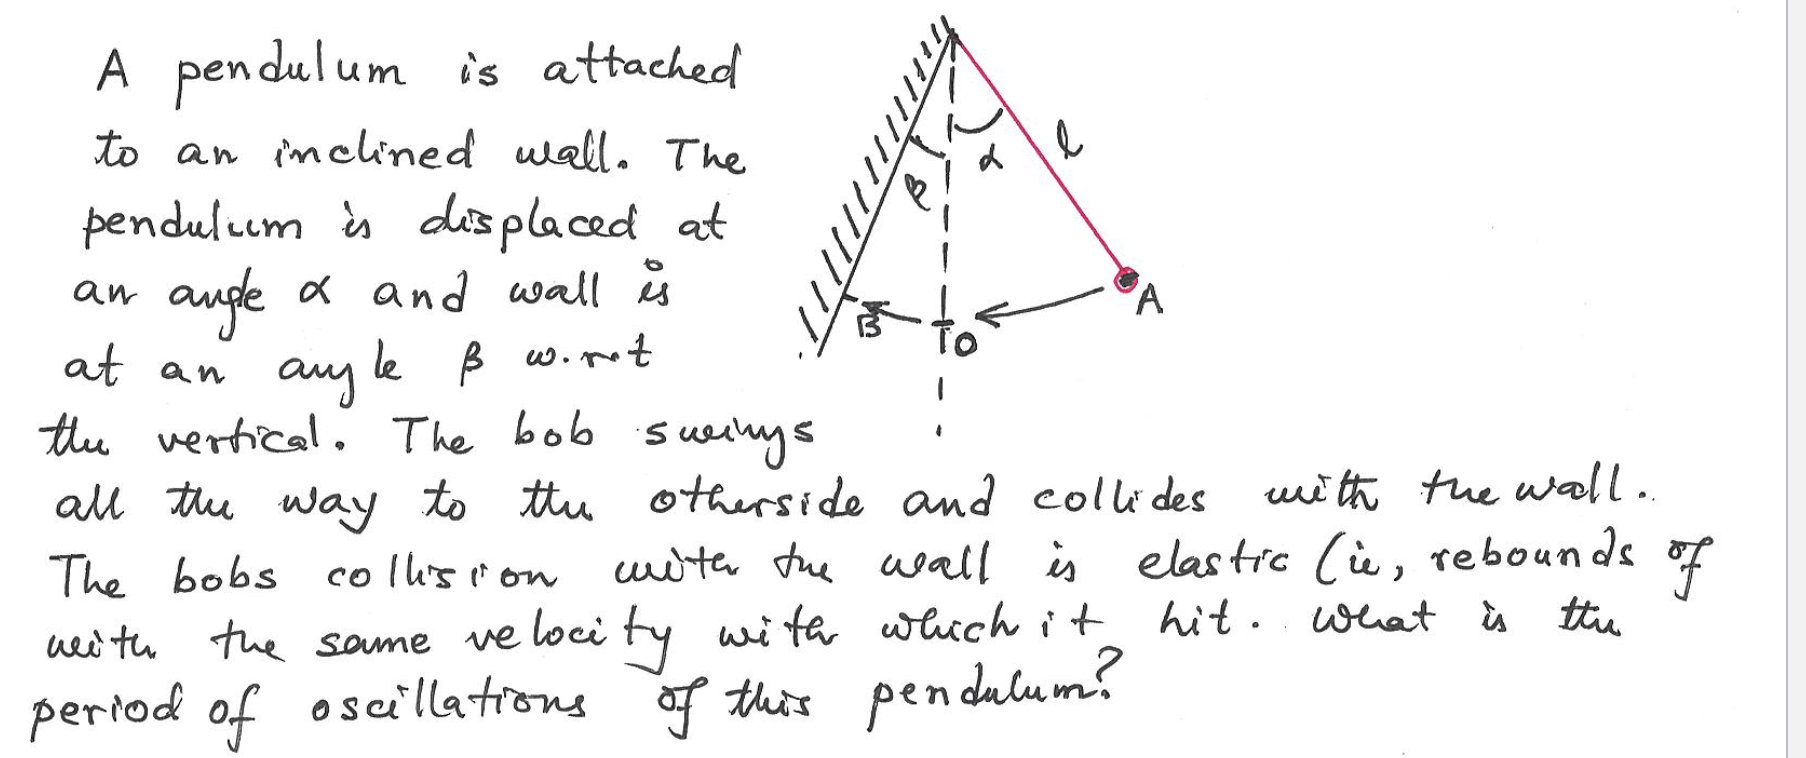 A pendulum is attached
to an inclined wall. The
pendulum is displaced at
an angle α and wall is
at an angle β w.r.t
the vertical. The bob swings
all the way to the otherside and collides with the wall.
The bobs collision with the wall is elastic (ie, rebounds of
with the same velocity with which it hit. What is the
period of oscillations of this pendulum?
l
α
β
A
B
O